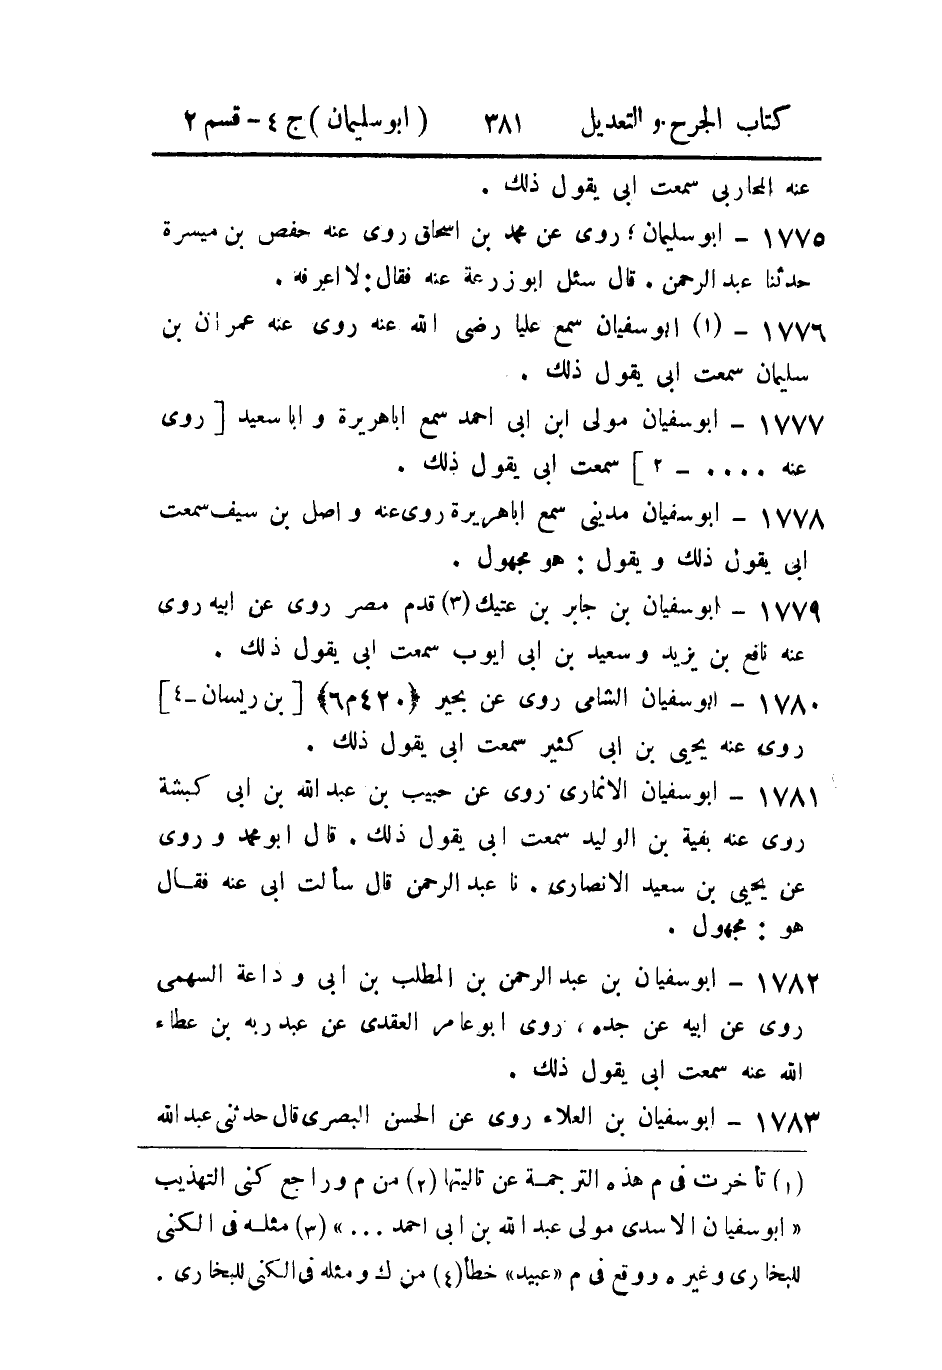 كتاب الجرح و التعديل ٣٨١ ( ابو سليمان ) ج ٤ - قسم ٢
عنه المحاربى سمعت ابى يقول ذلك .
١٧٧٥ - ابو سليمان ؛ روى عن محمد بن اسحاق روى عنه حفص بن ميسرة
حدثنا عبد الرحمن . قال سئل ابو زرعة عنه فقال : لا اعرفه .
١٧٧٦ - (١) ابو سفيان سمع عليا رضى الله عنه روى عنه عمران بن
سليمان سمعت ابى يقول ذلك .
١٧٧٧ - ابو سفيان مولى ابن ابى احمد سمع اباهريرة و ابا سعيد [ روى
عنه .... - ٢ ] سمعت ابى يقول ذلك .
١٧٧٨ - ابو سفيان مدينى سمع اباهريرة روى عنه واصل بن سيف سمعت
ابى يقول ذلك و يقول : هو مجهول .
١٧٧٩ - ابو سفيان بن جابر بن عتيك (٣) قدم مصر روى عن ابيه روى
عنه نافع بن يزيد و سعيد بن ابى ايوب سمعت ابى يقول ذلك .
١٧٨٠ - ابو سفيان الشامى روى عن بحير ﴿٤٢٠م٦﴾ [ بن ريسان - ٤ ]
روى عنه يحيى بن ابى كثير سمعت ابى يقول ذلك .
١٧٨١ - ابو سفيان الانمارى روى عن حبيب بن عبد الله بن ابى كبشة
روى عنه بقية بن الوليد سمعت ابى يقول ذلك . قال ابو محمد و روى
عن يحيى بن سعيد الانصارى . نا عبد الرحمن قال سألت ابى عنه فقال
هو : مجهول .
١٧٨٢ - ابو سفيان بن عبد الرحمن بن المطلب بن ابى وداعة السهمى
روى عن ابيه عن جده ، روى ابو عامر العقدى عن عبد ربه بن عطاء
الله عنه سمعت ابى يقول ذلك .
١٧٨٣ - ابو سفيان بن العلاء روى عن الحسن البصرى قال حدثنى عبد الله
(١) تأخرت فى م هذه الترجمة عن تاليتها (٢) من م وراجع كنى التهذيب
« ابو سفيان الاسدى مولى عبد الله بن ابى احمد ... » (٣) مثله فى الكنى
للبخارى وغيره ووقع فى م «عبيد» خطأ (٤) من ك ومثله فى الكنى للبخارى .